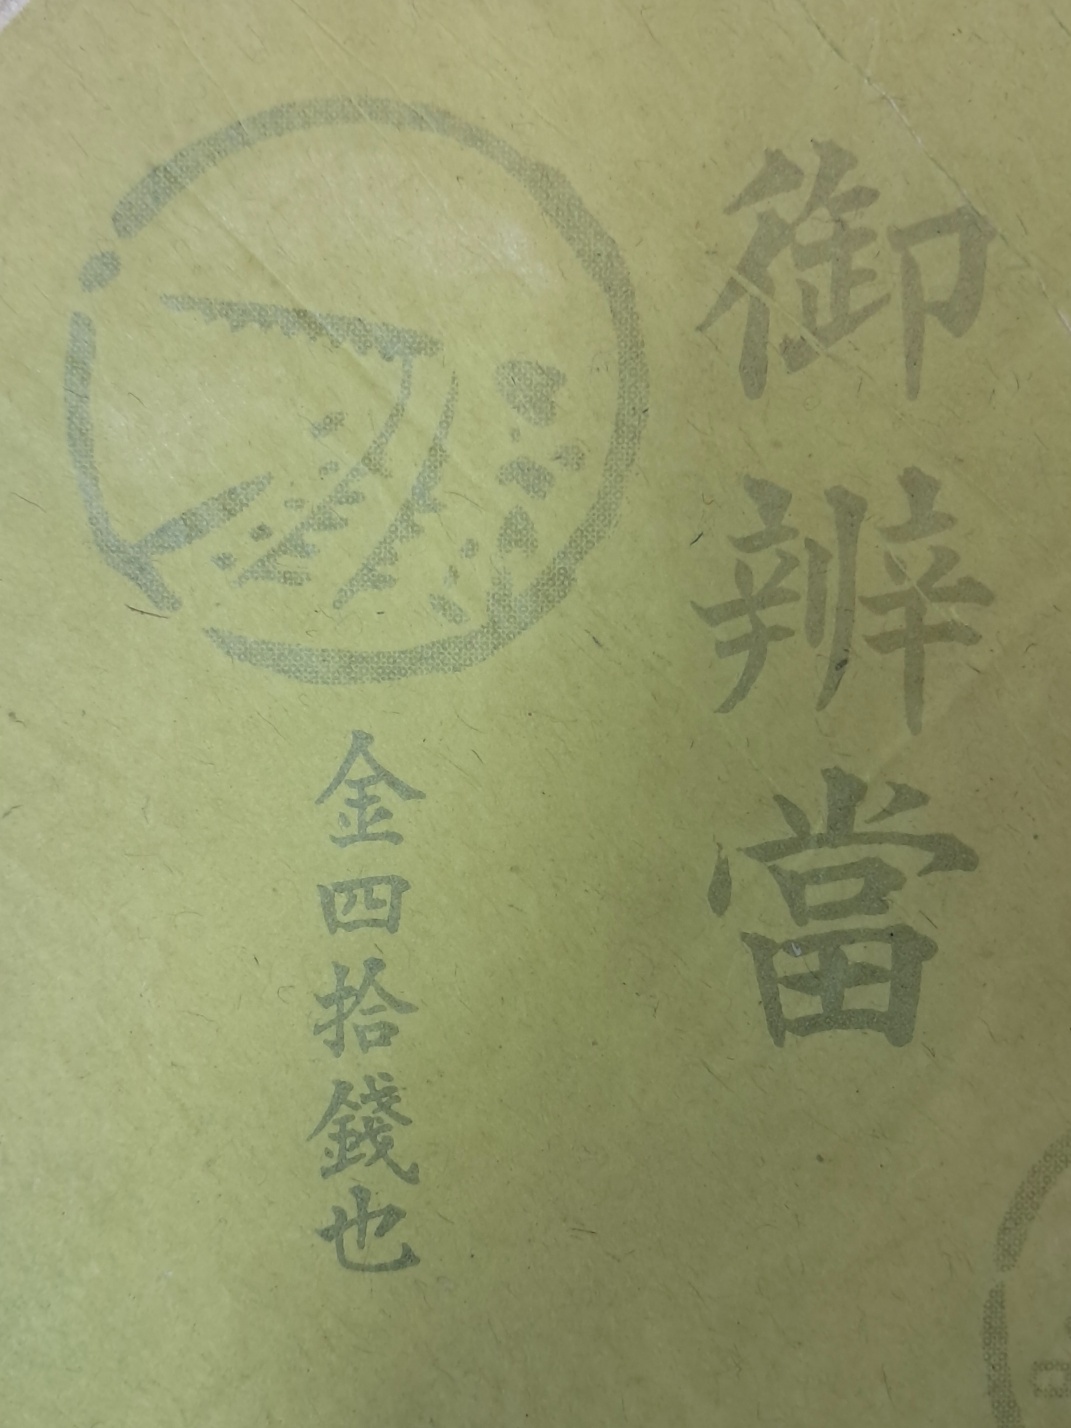 御辨當
金四拾錢也